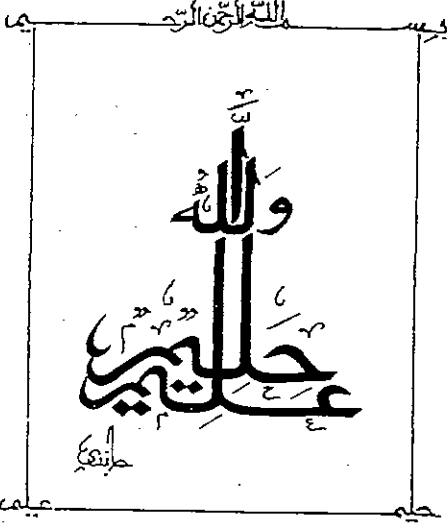 بسم الله الرحمن الرحيم
والله
عليم
حليم
حليم عليم